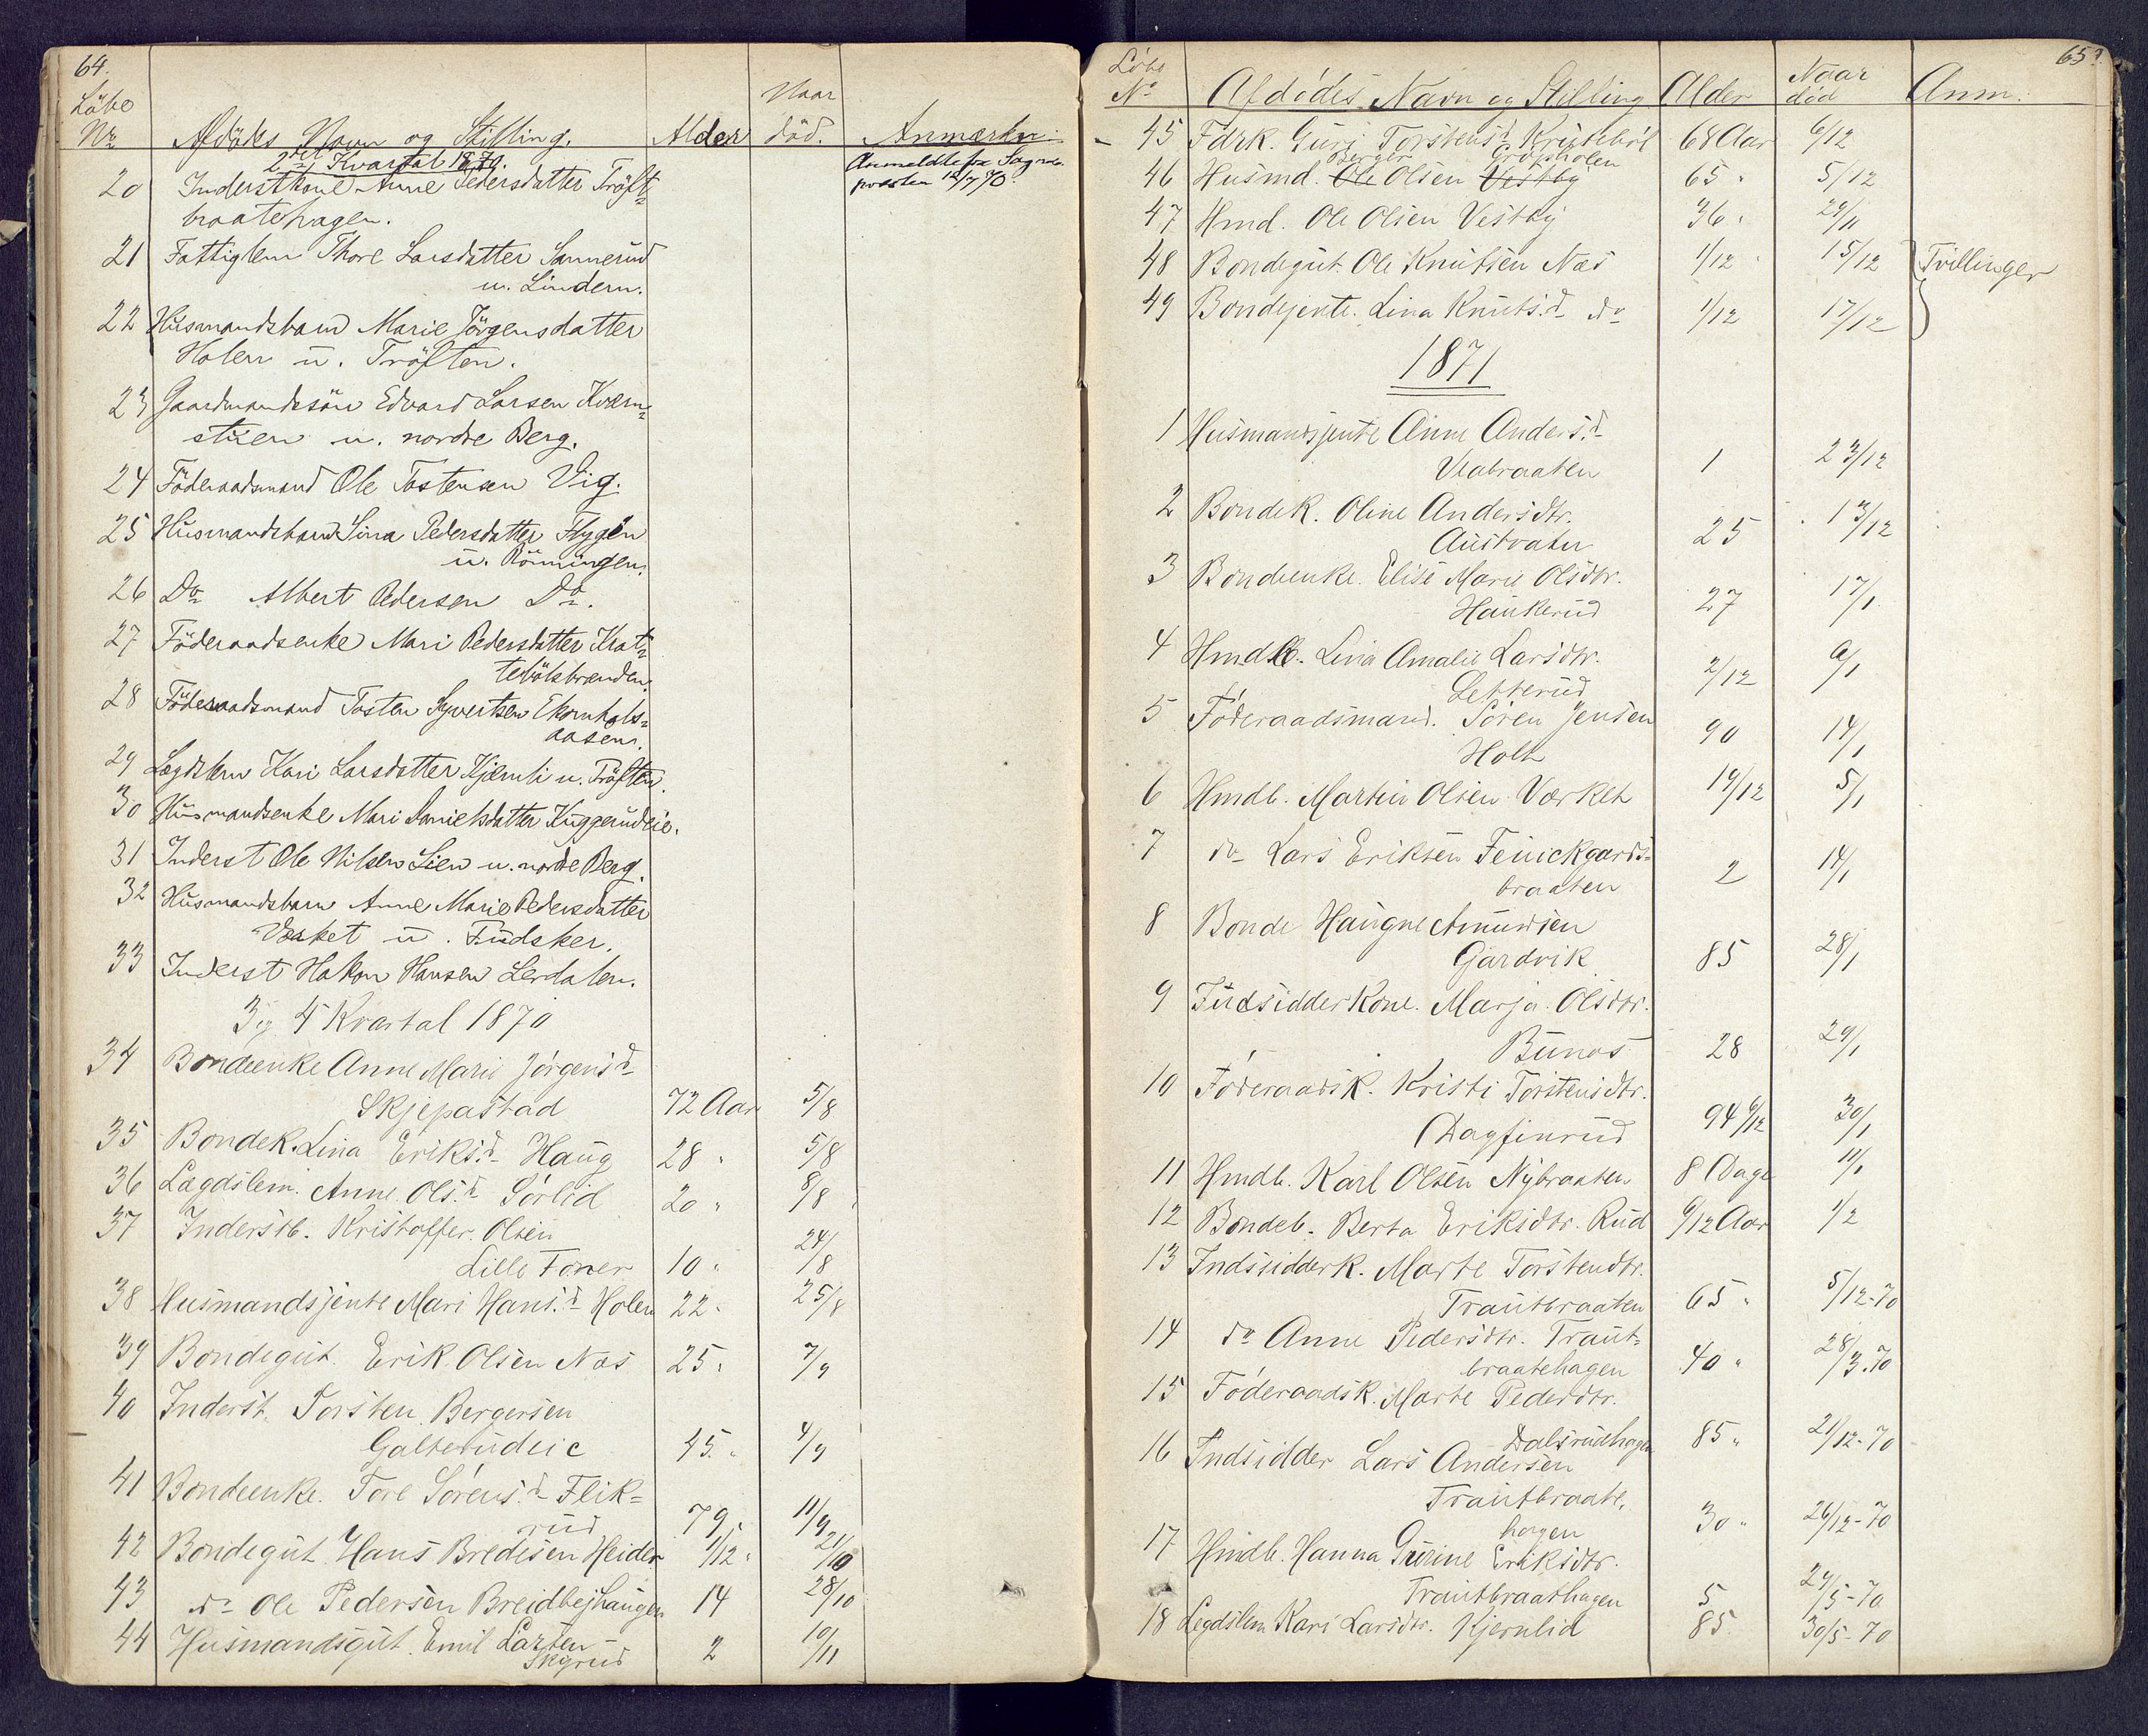 64.
Löbe
Nr
Afdödes Navn og Stilling.
Alder
Naar
död.
Anmærkn:
2det Kvartal 1870.
Anmeldte for Sogne-
præsten 12/7 70.
20 Inderstkone Anne Pedersdatter Tröft-
braatehagen.
21 Fattiglem Thore Larsdatter Sannerud
u. Lindern.
22 Husmandsbarn Marie Jörgensdatter
Holen u. Tröften.
23 Gaardmandssön Edvard Larsen Kværn-
stuen u. nordre Berg.
24 Föderaadsmand Ole Tostensen Vig.
25 Husmandsbarn Lina Pedersdatter Flygen
u. Rönningen.
26 Do Albert Pedersen Do.
27 Föderaadsenke Mari Pedersdatter Krat-
tebölsbraaden.
28 Föderaadsmand Tosten Syvertsen Ekornhols-
aasen.
29 Lægdslem Kari Larsdatter Kjærnli u. Tröften.
30 Husmandsenke Mari Danielsdatter Kuggerudeie.
31 Inderst Ole Nilsen Lien u. nordre Berg.
32 Husmandsbarn Anne Marie Pedersdatter
Værket u. Fudsker.
33 Inderst Hakon Hansen Lerdalen.
3 og 4 Kvartal 1870
34 Bondeenke Anne Marie Jörgensd
Skjepastad 72 Aar 5/8
35 Bondek. Lina Eriksd Haug 28 " 5/8
36 Lægdslem. Anne Olsd Sörlid 20 " 8/8
37 Inderstb. Kristoffer Olsen
Lille Foner 10 " 24/8
38 Husmandsjente Mari Hansd Holen 22 " 25/8
39 Bondegut. Erik Olsen Næs 25 " 7/9
40 Inderst. Torsten Bergersen
Galterudeie 45 " 4/9
41 Bondeenke. Tore Sörensd Flik-
rud 79 " 11/9
42 Bondegut Hans Bredesen Heider 1/12 " 21/10
43 do Ole Pedersen Breidbejhaugen 14 28/10
44 Husmandsgut. Emil Larsen
Skgrud 2 10/11
65.
Löbe
No
Afdödes Navn og Stilling
Alder
Naar
död
Anm.
45 Fdrk. Guri Torstensd Kratteböl 68 Aar 6/12
Berger Gröpholen
46 Husmd. Ole Olsen Vestby 65 " 5/12
47 Hmd. Ole Olsen Vestby 36 " 29/11
48 Bondegut. Ole Knutsen Næs 1/12 " 15/12 Tvillinger
49 Bondejente. Lina Knutsd do 1/12 17/12
1871
1 Husmandsjente Anne Andersd
Vlabraaten 1 23/12
2 Bondek. Oline Andersdtr.
Austvatn 25 13/12
3 Bondeenke. Elise Marie Olsdtr.
Haukerud 27 17/1
4 Hmdb. Lina Amalie Larsdtr.
Letterud 2/12 9/1
5 Föderaadsmand. Sören Jensen
Holt 90 14/1
6 Hmdb. Martin Olsen Værket 14/12 5/1
7 do Lars Eriksen Feuickgaards-
braaten 2 14/1
8 Bonde Haagne Amundsen
Gardvik 85 28/1
9 Indsidderkone. Marja Olsdtr.
Bunæs 28 29/1
10 Föderaadsk. Kristi Torstensdtr.
Dagfinrud 94 6/12 30/1
11 Hmdb. Karl Olsen Nybraaten 8 Dage 11/1
12 Bondeb. Berta Eriksdtr. Rud 6/12 Aar 1/2
13 Indsidderk. Marte Torstendtr.
Trautbraaten 65 " 5/12-70
14 do Anne Pedersdtr. Traut-
braatehagen 40 " 28/3.70
15 Föderaadsk. Marte Pederdtr.
Dalsrudhagen 85 " 21/12-70
16 Indsidder Lars Andersen
Trautbraate,
hagen 30 " 26/12-70
17 Hmdb. Hanna Gurine Eriksdtr.
Trautbraathagen 5 29/5-70
18 Legdslem Kari Larsdtr. Kjernlid 85 30/5-70